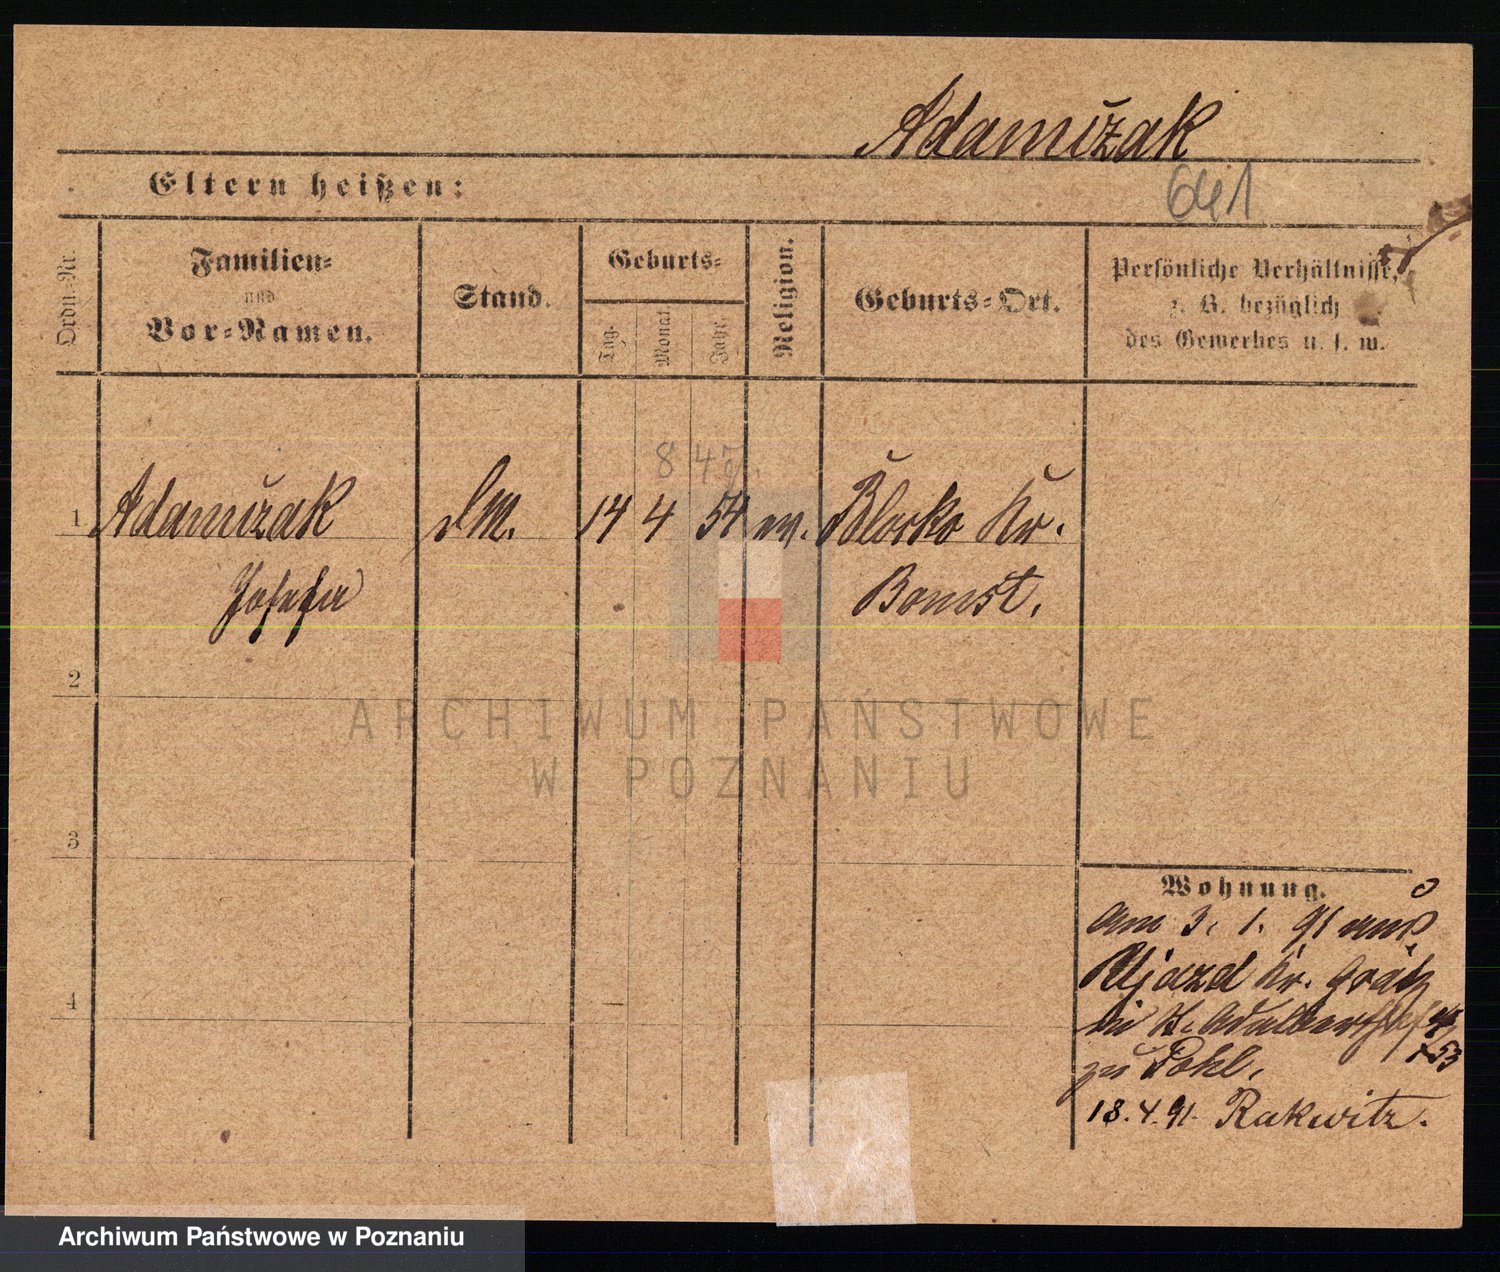 Adamczak
641
Eltern heißen:
Ordn.-Nr.
Familien-
und
Vor-Namen.
Stand.
Geburts-
Tag.
Monat.
Jahr.
Religion.
Geburts-Ort.
Persönliche Verhältnisse,
z. B. bezüglich
des Gewerbes u. s. w.
8 47
1 Adamczak DM. 14 4 54 ev. Blosko Kr.
Josefa Bomst.
2
ARCHIWUM PAŃSTWOWE
W POZNANIU
3
Wohnung.
am 3. 1. 91 aus
Ujazd Kr. Grätz
St. Adalbert
53
zu Pohl.
4
18.4.91. Rakwitz.
Archiwum Państwowe w Poznaniu